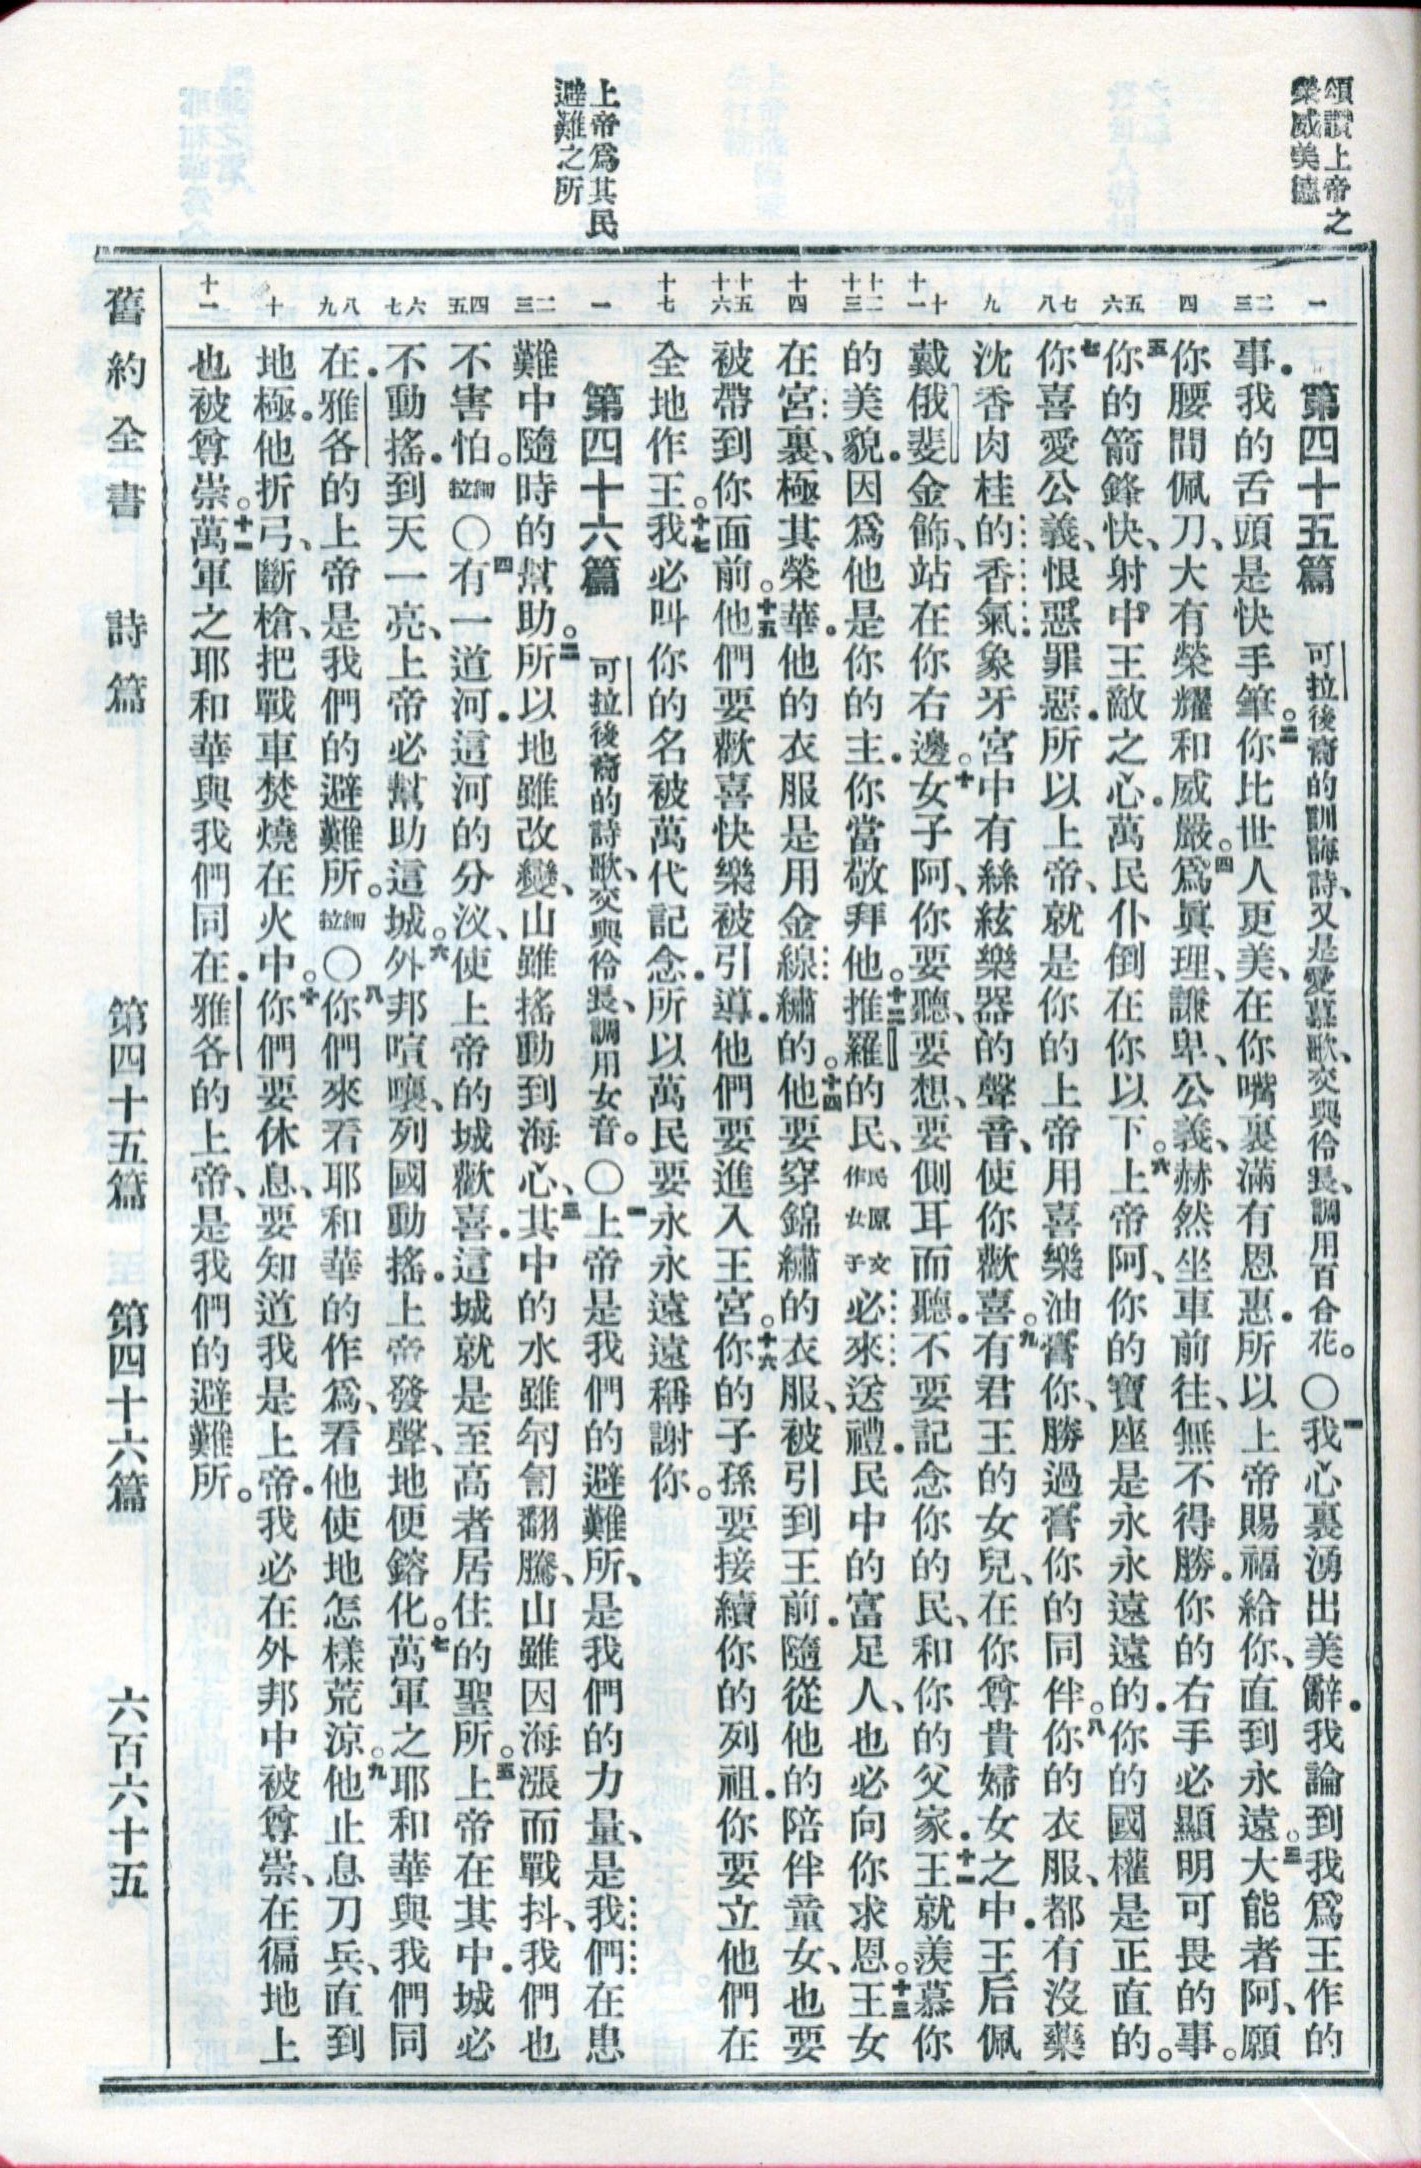 頌讚上帝之
榮威美德
上帝爲其民
避難之所
一
二 三
四
五 六
七 八
九
十 十一
十二 十三
十四
十五 十六
十七
一
二 三
四 五
六 七
八 九
十
十一
第四十五篇 可拉後裔的訓誨詩、又是愛慕歌、交與伶長、調用百合花。〇一我心裏湧出美辭．我論到我爲王作的
事．我的舌頭是快手筆。二你比世人更美、在你嘴裏滿有恩惠．所以上帝賜福給你、直到永遠。三大能者阿、願
你腰間佩刀、大有榮耀和威嚴。四爲眞理、謙卑、公義、赫然坐車前往、無不得勝．你的右手必顯明可畏的事。
五你的箭鋒快、射中王敵之心．萬民仆倒在你以下。六上帝阿、你的寶座是永永遠遠的．你的國權是正直的。
七你喜愛公義、恨惡罪惡．所以上帝、就是你的上帝用喜樂油膏你、勝過膏你的同伴。八你的衣服、都有沒藥
沈香肉桂的香氣．象牙宮中有絲絃樂器的聲音、使你歡喜。九有君王的女兒、在你尊貴婦女之中．王后佩
戴俄斐金飾、站在你右邊。十女子阿、你要聽、要想、要側耳而聽．不要記念你的民、和你的父家．十一王就羨慕你
的美貌．因爲他是你的主．你當敬拜他。十二推羅的民、民原文作女子必來送禮．民中的富足人、也必向你求恩。十三王女
在宮裏、極其榮華．他的衣服是用金線繡的。十四他要穿錦繡的衣服、被引到王前．隨從他的陪伴童女、也要
被帶到你面前。十五他們要歡喜快樂被引導．他們要進入王宮。十六你的子孫要接續你的列祖．你要立他們在
全地作王。十七我必叫你的名被萬代記念．所以萬民要永永遠遠稱謝你。
第四十六篇 可拉後裔的詩歌、交與伶長、調用女音。〇一上帝是我們的避難所、是我們的力量、是我們在患
難中隨時的幫助。二所以地雖改變、山雖搖動到海心、三其中的水雖匉訇翻騰、山雖因海漲而戰抖、我們也
不害怕。細拉〇四有一道河．這河的分汊、使上帝的城歡喜．這城就是至高者居住的聖所。五上帝在其中．城必
不動搖．到天一亮、上帝必幫助這城。六外邦喧嚷、列國動搖．上帝發聲、地便鎔化。七萬軍之耶和華與我們同
在．雅各的上帝是我們的避難所。細拉〇八你們來看耶和華的作爲、看他使地怎樣荒涼。九他止息刀兵、直到
地極．他折弓、斷槍、把戰車焚燒在火中。十你們要休息、要知道我是上帝．我必在外邦中被尊崇、在徧地上
也被尊崇。十一萬軍之耶和華與我們同在．雅各的上帝、是我們的避難所。
舊約全書 詩篇 第四十五篇 至 第四十六篇 六百六十五